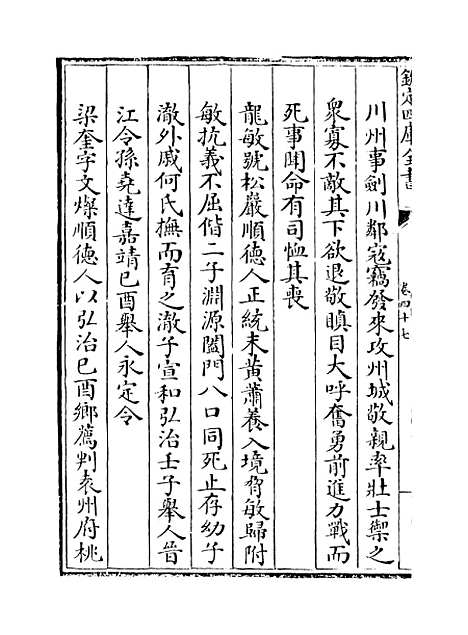 欽定四庫全書
卷四十七
川州事劍川鄰寇竊發來攻州城敬親率壯士禦之
衆寡不敵其下欲退敬瞋目大呼奮勇前進力戰而
死事聞命有司恤其喪
龍敏號松巖順德人正統末黃蕭養入境脅敏歸附
敏抗義不屈偕二子淵源闔門八口同死止存幼子
澈外戚何氏撫而育之澈子宣和弘治壬子舉人晉
江令孫堯達嘉靖已酉舉人永定令
梁奎字文燦順德人以弘治已酉鄉薦判袁州府桃